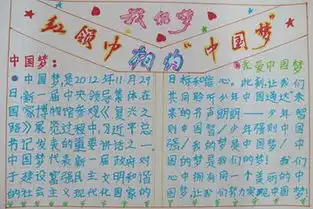 我的梦
红领巾相约“中国梦”
中国梦：
我爱中国梦
中国梦是2012年11月29
日新一届中央领导集体在
国家博物馆参观《复兴之
路》展览过程中，习近平总
书记发表的重要讲话之一。
中国梦代表新一届政府对
于建设富强民主文明和谐
的社会主义现代化国家的
目标和信心。此刻，让我们
共同聆听少年中国通达“未
来的手声朗朗——少年智
则中国智/少年强则中国
强/我的梦是中国梦/中
国的梦是我们的梦！我们
心中拥有同一个美丽的中
国梦，让我们努力实现中国梦！